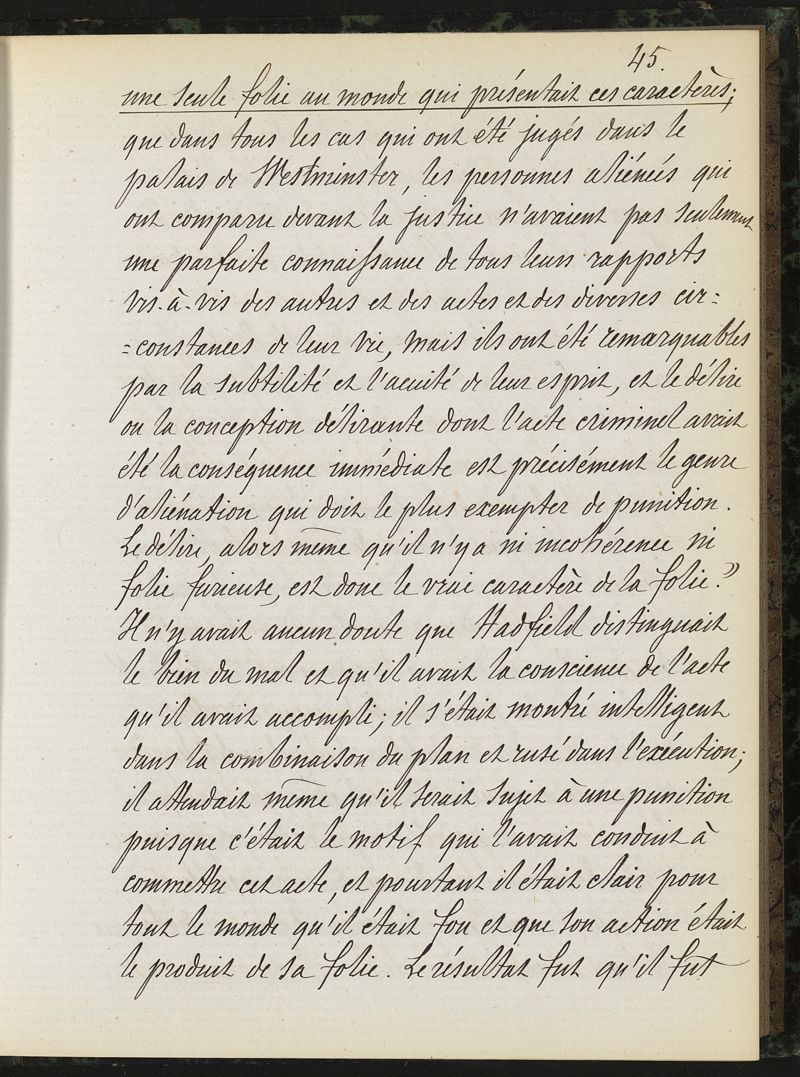 45.
une seule folie au monde qui présentait ces caractères;
que dans tous les cas qui ont été jugés dans le
palais de Westminster, les personnes aliénés qui
ont comparu devant la justice n'avaient pas seulement
une parfaite connaissance de tous leurs rapports
vis-à-vis des autres et des actes et des diverses cir=
=constances de leur vie, mais ils ont été remarquables
par la subtilité et l'acuité de leur esprit, et le délire
ou la conception délirante dont l'acte criminel avait
été la conséquence immédiate est précisément le genre
d'aliénation qui doit le plus exempter de punition.
Le délire, alors même qu'il n'y a ni incohérence ni
folie furieuse, est donc le vrai caractère de la folie."
Il n'y avait aucun doute que Hadfield distinguait
le bien du mal et qu'il avait la conscience de l'acte
qu'il avait accompli; il s'était montré intelligent
dans la combinaison du plan et rusé dans l'exécution;
il attendait même qu'il serait sujet à une punition
puisque c'était le motif qui l'avait conduit à
commettre cet acte, et pourtant il était clair pour
tout le monde qu'il était fou et que son action était
le produit de sa folie. Le résultat fut qu'il fut